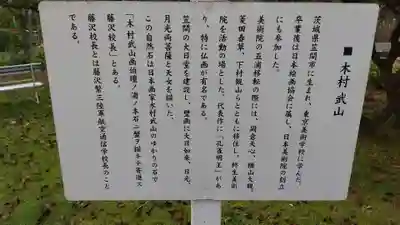 ■木村 武山
茨城県笠間市に生まれ、東京美術学校に学んだ。
卒業後は日本絵画協会に属し、日本美術院の創立
にも参加した。
美術院の五浦移転の際には、岡倉天心、横山大観、
菱田春草、下村観山らとともに移住し、終生美術
院を活動の場とした。代表作に「孔雀明王」があ
り、特に仏画が有名である。
笠間の大日堂を建設し、壁画に大日如来、日光、
月光両菩薩と天女を描いた。
この自然石は日本画家木村武山のゆかりの石で
「木村武山画伯
藤沢校長」とある。
藤沢校長とは藤沢繁三陸軍航空通信学校長のこと
である。